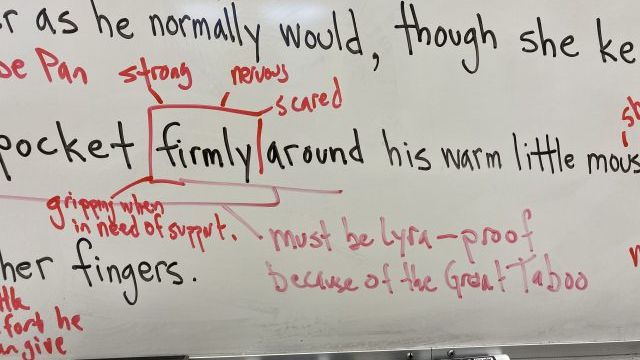 r as he normally would, though she ke
be Pan strong nervous scared
pocket firmly around his warm little mous
gripping when
in need of support.
must be Lyra-proof
because of the Great Taboo
her fingers.
fort he
an give